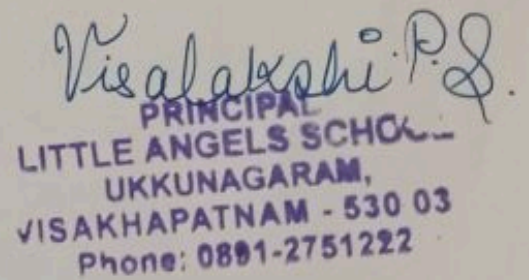 Visalakshi.P.S.
PRINCIPAL
LITTLE ANGELS SCHOOL
UKKUNAGARAM,
VISAKHAPATNAM - 530 03
Phone: 0891-2751222